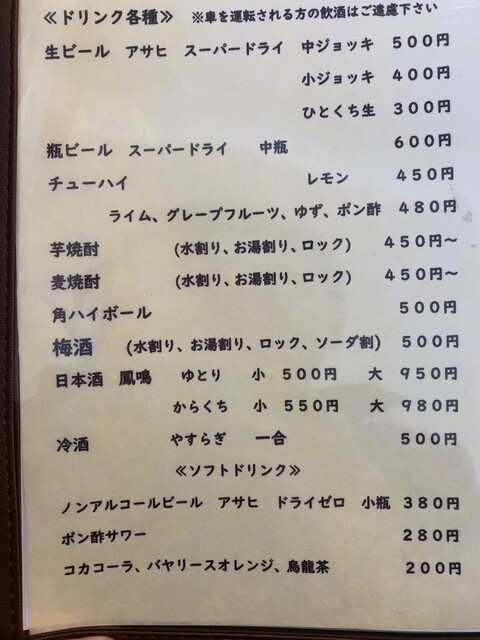 ≪ドリンク各種≫ ※車を運転される方の飲酒はご遠慮下さい
生ビール アサヒ スーパードライ 中ジョッキ 500円
小ジョッキ 400円
ひとくち生 300円
瓶ビール スーパードライ 中瓶 600円
チューハイ レモン 450円
ライム、グレープフルーツ、ゆず、ポン酢 480円
芋焼酎 (水割り、お湯割り、ロック) 450円～
麦焼酎 (水割り、お湯割り、ロック) 450円～
角ハイボール 500円
梅酒 (水割り、お湯割り、ロック、ソーダ割) 500円
日本酒 鳳鳴 ゆとり 小 500円 大 950円
からくち 小 550円 大 980円
冷酒 やすらぎ 一合 500円
≪ソフトドリンク≫
ノンアルコールビール アサヒ ドライゼロ 小瓶 380円
ポン酢サワー 280円
コカコーラ、バヤリースオレンジ、烏龍茶 200円